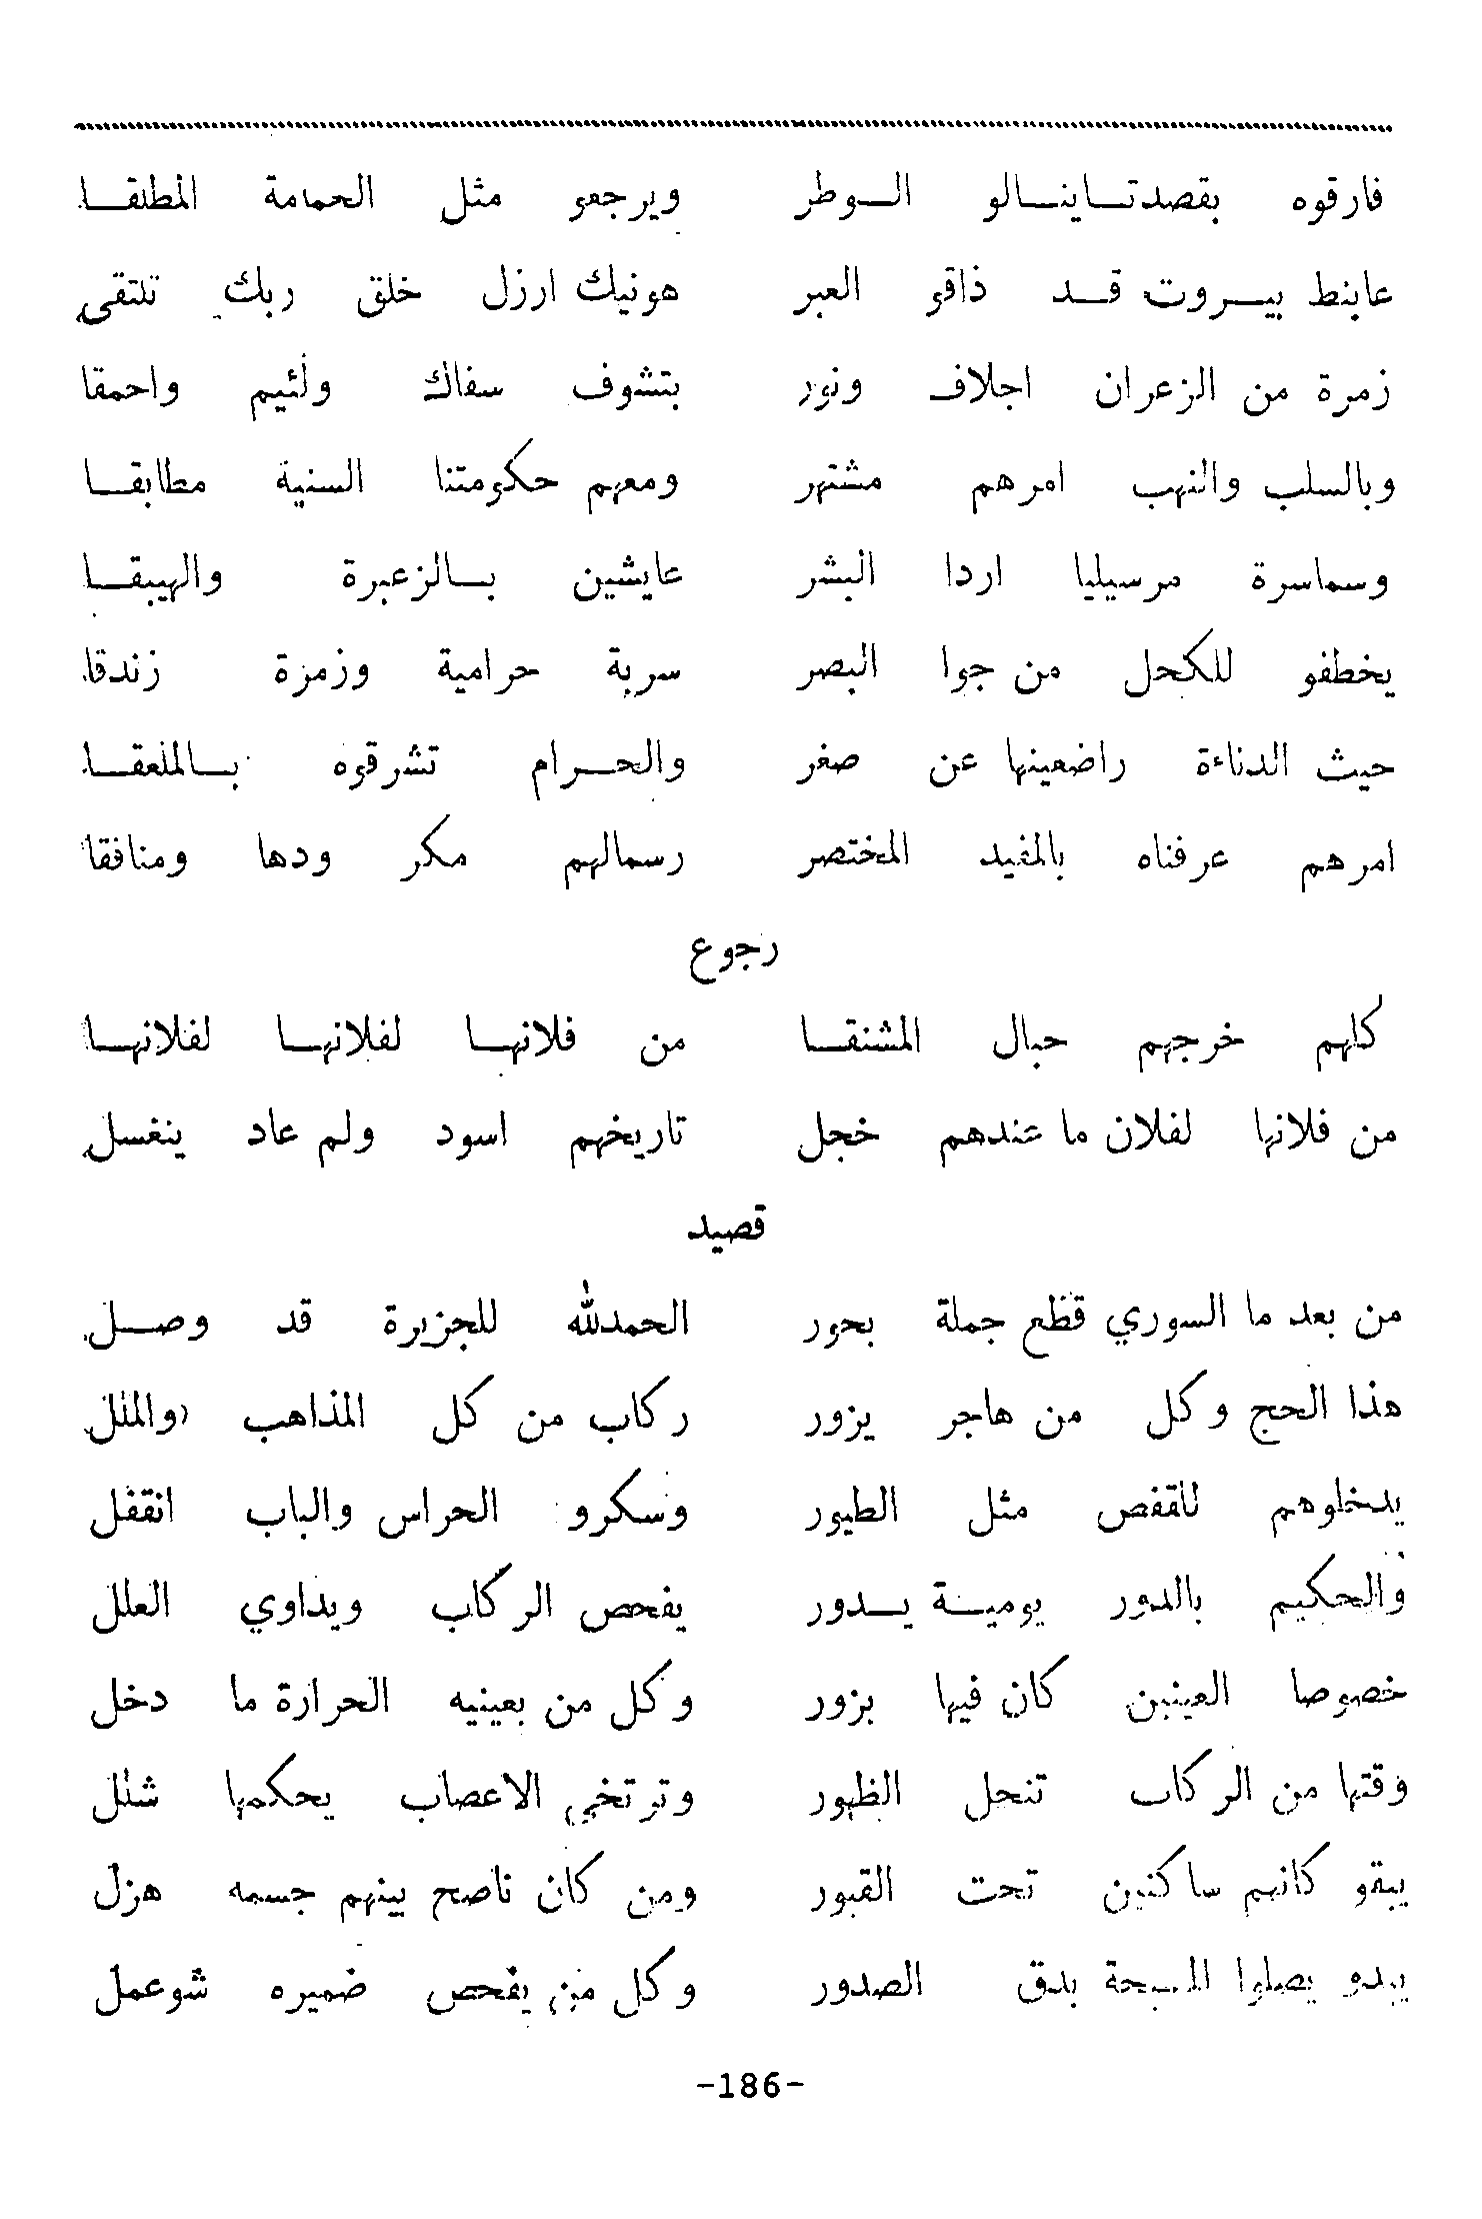 فارقوه بقصدتـاينـالو الـوطر ويرجعو مثل الحمامة المطلقـا
عابنط بيـروت قـد ذاقو العبر هونيك ارزل خلق ربك تلتقي
زمرة من الزعران اجلاف ونور بتشوف سفاك ولئيم واحمقا
وبالسلب والنهب امرهم مشتهر ومعهم حكومتنا السنية مطابقـا
وسماسرة مرسيليا اردا البشر عايشين بـالزعبرة والهيبقـا
يخطفو للكحل من جوا البصر سربة حرامية وزمزة زندقا
حيث الدناءة راضعينها عن صغر والحـرام تشرقوه بـالملعقـا
امرهم عرفناه بالمفيد المختصر رسمالهم مكر ودها ومنافقا
رجوع
كلهم خرجهم حبال المشنقـا من فلانهـا لفلانهـا لفلانهـا
من فلانها لفلان ما عندهم خجل تاريخهم اسود ولم عاد ينغسل
قصيد
من بعد ما السوري قطع جملة بحور الحمدلله للجزيرة قد وصـل
هذا الحج وكل من هاجر يزور ركاب من كل المذاهب والملل
يدخلوهم للقفص مثل الطيور وسكرو الحراس والباب انقفل
والحكيم بالدور يوميـة يـدور يفحص الركاب ويداوي العلل
خصوصا العينين كان فيها بزور وكل من بعينيه الحرارة ما دخل
وقتها من الركاب تنحل الظهور وترتخي الاعصاب يحكمها شلل
يبقو كانهم ساكنين تحت القبور ومن كان ناصح بينهم جسمه هزل
يبدو يصلوا المسبحة بدق الصدور وكل من يفحص ضميره شوعمل
-186-